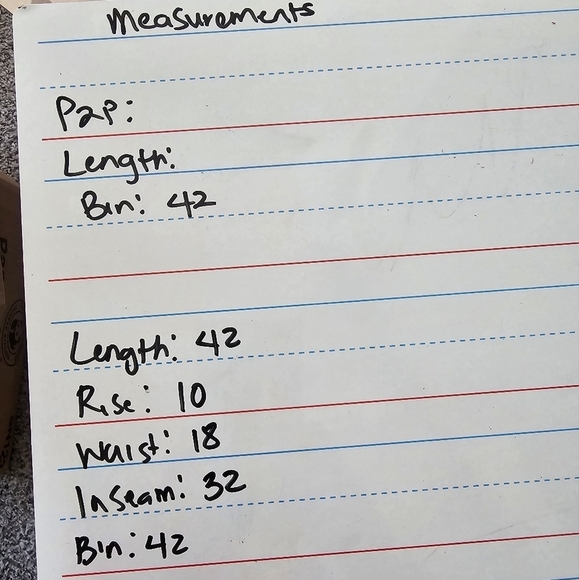 Measurements
P2P:
Length:
Bin: 42
Length: 42
Rise: 10
Waist: 18
Inseam: 32
Bin: 42